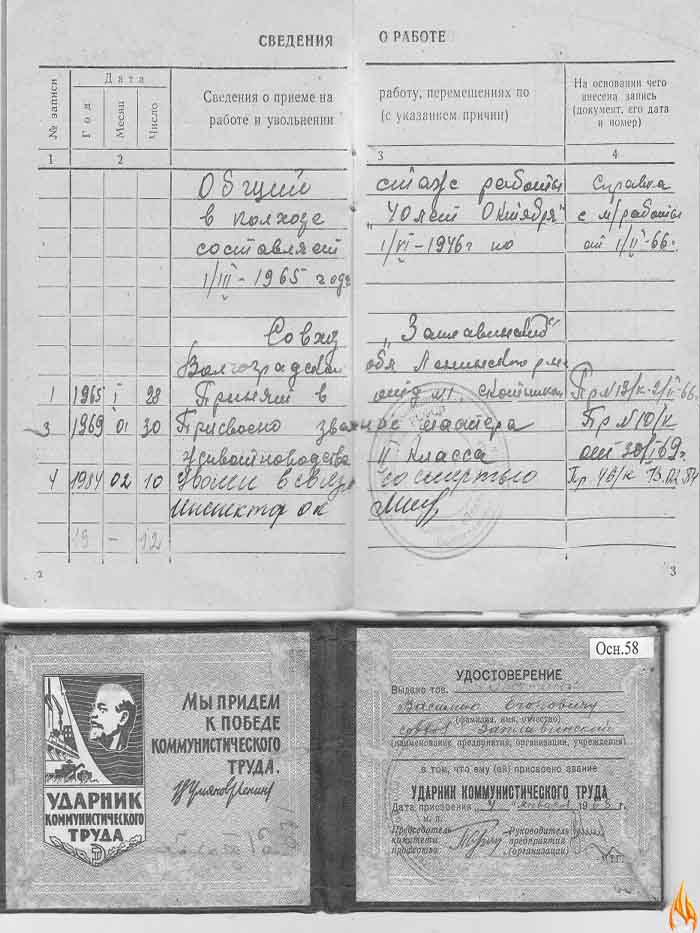 СВЕДЕНИЯ О РАБОТЕ
№ записи
Дата
Год
Месяц
Число
Сведения о приеме на работу, перемещениях по
работе и увольнении (с указанием причин)
На основании чего
внесена запись
(документ, его дата
и номер)
1 2 3 4
Общий стаж работы Справка
в колхозе "40 лет Октября" с м/работы
составляет 1/VI-1946г по от 1/II-66г.
1/III-1965 года
Совхоз "Заплавинский"
Волгоградской обл Ленинского р-на
1 1965 I 28 Принят в скотником Пр №13/к-2/II-66г.
3 1969 01 30 Присвоено звание мастера Пр №10/к
животноводства II класса от 30/I69г.
4 1984 02 10 Уволен в связи со смертью Пр 46/к 13.02.84
Инспектор ок
19 – 12
2 3
Осн.58
МЫ ПРИДЕМ
К ПОБЕДЕ
КОММУНИСТИЧЕСКОГО
ТРУДА.
В Ульянов (Ленин)
УДАРНИК
КОММУНИСТИЧЕСКОГО
ТРУДА
УДОСТОВЕРЕНИЕ
Выдано тов.
Василию Егоровичу
(фамилия, имя, отчество)
совхоз Заплавинский
(наименование предприятия, организации, учреждения)
в том, что ему (ей) присвоено звание
УДАРНИК КОММУНИСТИЧЕСКОГО ТРУДА
Дата присвоения января 19 г.
м. п.
Председатель
комитета
профсоюза
Руководитель
предприятия
(организации)